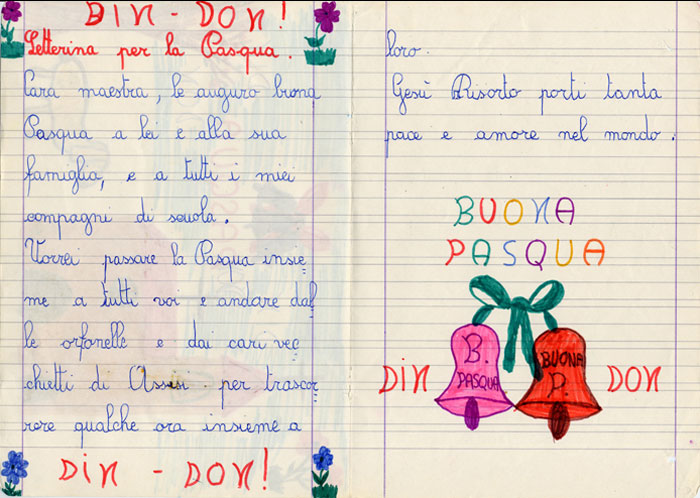 DIN - DON!
Letterina per la Pasqua.
Cara maestra, le auguro buona
Pasqua a lei e alla sua
famiglia, e a tutti i miei
compagni di scuola.
Vorrei passare la Pasqua insie
me a tutti voi e andare dal
le orfanelle e dai cari vec
chietti di Assisi per trascor
rere qualche ora insieme a
DIN - DON!
loro.
Gesù Risorto porti tanta
pace e amore nel mondo.
BUONA
PASQUA
DIN
B.
PASQUA
BUONA
P.
DON